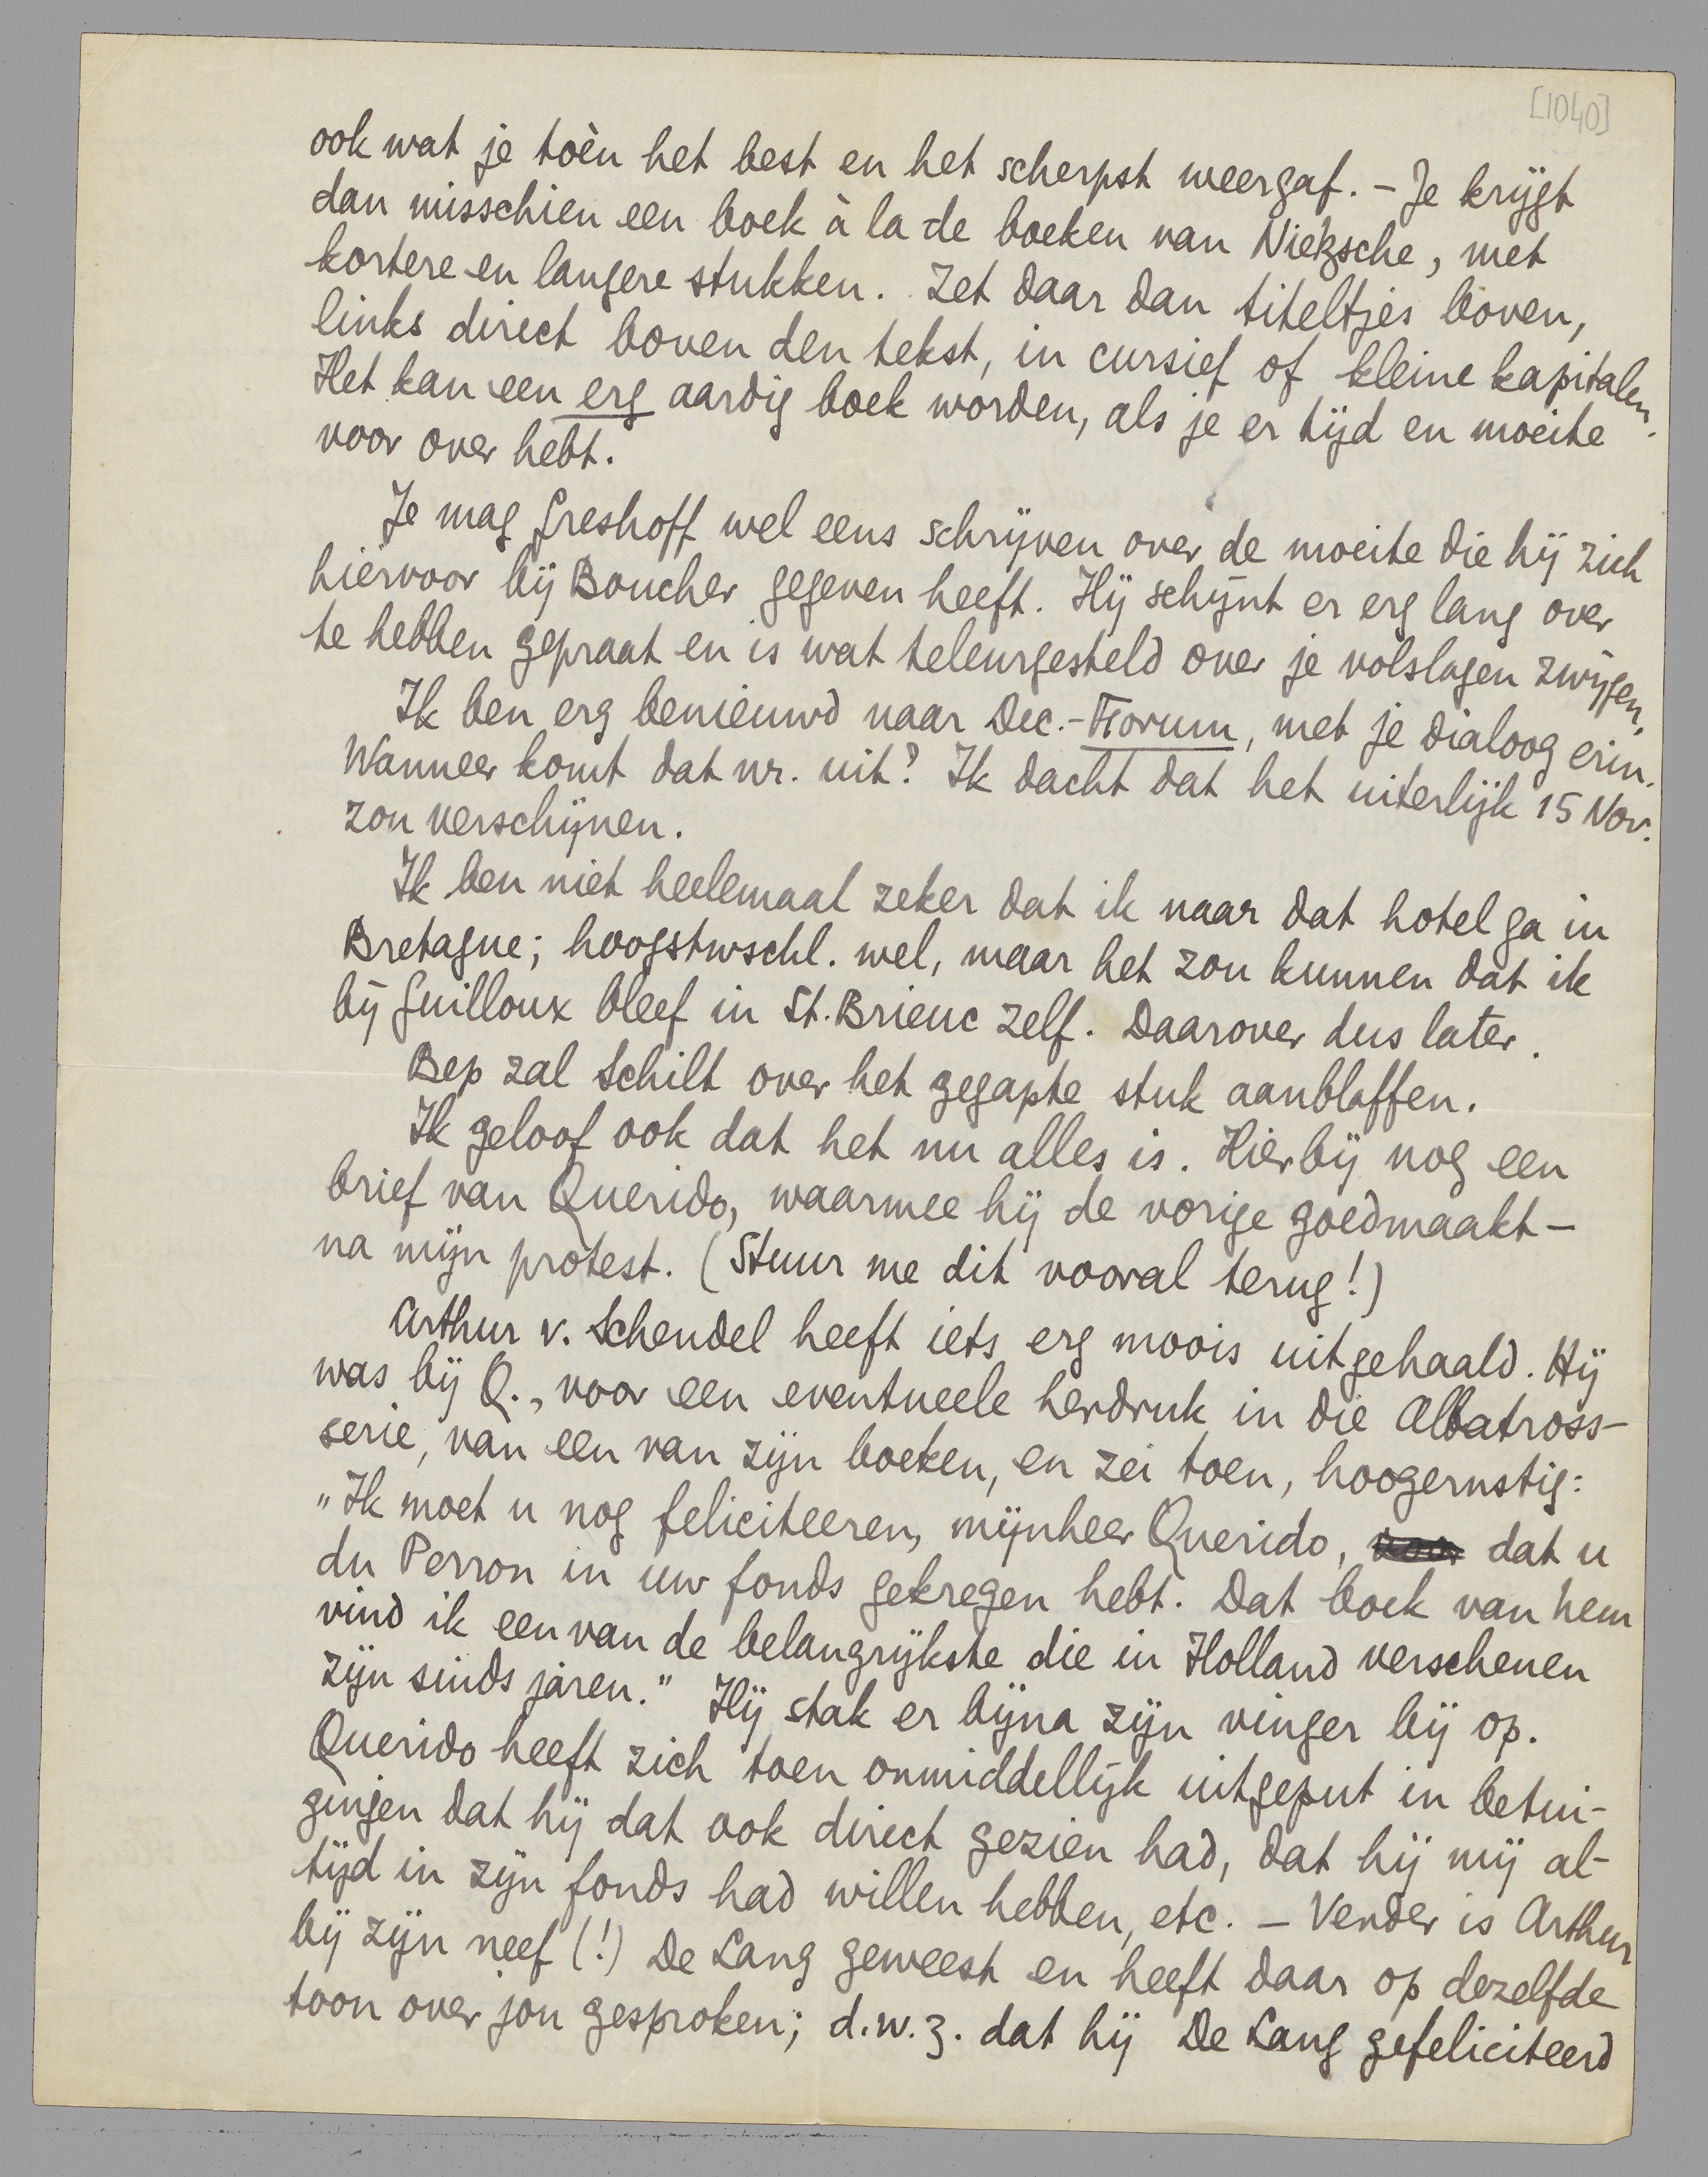 [1040]
ook wat je toèn het best en het scherpst weergaf. – Je krijgt
dan misschien een boek à la de boeken van Nietzsche, met
kortere en langere stukken. Zet daar dan titeltjes boven,
links direct boven den tekst, in cursief of kleine kapitalen.
Het kan een erg aardig boek worden, als je er tijd en moeite
voor over hebt.
Je mag Greshoff wel eens schrijven over de moeite die hij zich
hiervoor bij Boucher gegeven heeft. Hij schijnt er erg lang over
te hebben gepraat en is wat teleurgesteld over je volslagen zwijgen.
Ik ben erg benieuwd naar Dec.-Forum, met je dialoog erin.
Wanneer komt dat nr. uit? Ik dacht dat het uiterlijk 15 Nov.
zou verschijnen.
Ik ben niet heelemaal zeker dat ik naar dat hotel ga in
Bretagne; hoogstwschl. wel, maar het zou kunnen dat ik
bij Guilloux bleef in St. Brieuc zelf. Daarover dus later.
Bep zal Schilt over het gegapte stuk aanblaffen.
Ik geloof ook dat het nu alles is. Hierbij nog een
brief van Querido, waarmee hij de vorige goedmaakt –
na mijn protest. (Stuur me dit vooral terug!)
Arthur v. Schendel heeft iets erg moois uitgehaald. Hij
was bij Q., voor een eventueele herdruk in die Albatross-
serie, van een van zijn boeken, en zei toen, hoogernstig:
„Ik moet u nog feliciteeren, mijnheer Querido, voor dat u
du Perron in uw fonds gekregen hebt. Dat boek van hem
vind ik een van de belangrijkste die in Holland verschenen
zijn sinds jaren.” Hij stak er bijna zijn vinger bij op.
Querido heeft zich toen onmiddellijk uitgeput in betui-
gingen dat hij dat ook direct gezien had, dat hij mij al-
tijd in zijn fonds had willen hebben, etc. – Verder is Arthur
bij zijn neef (!) De Lang geweest en heeft daar op dezelfde
toon over jou gesproken; d.w.z. dat hij De Lang gefeliciteerd